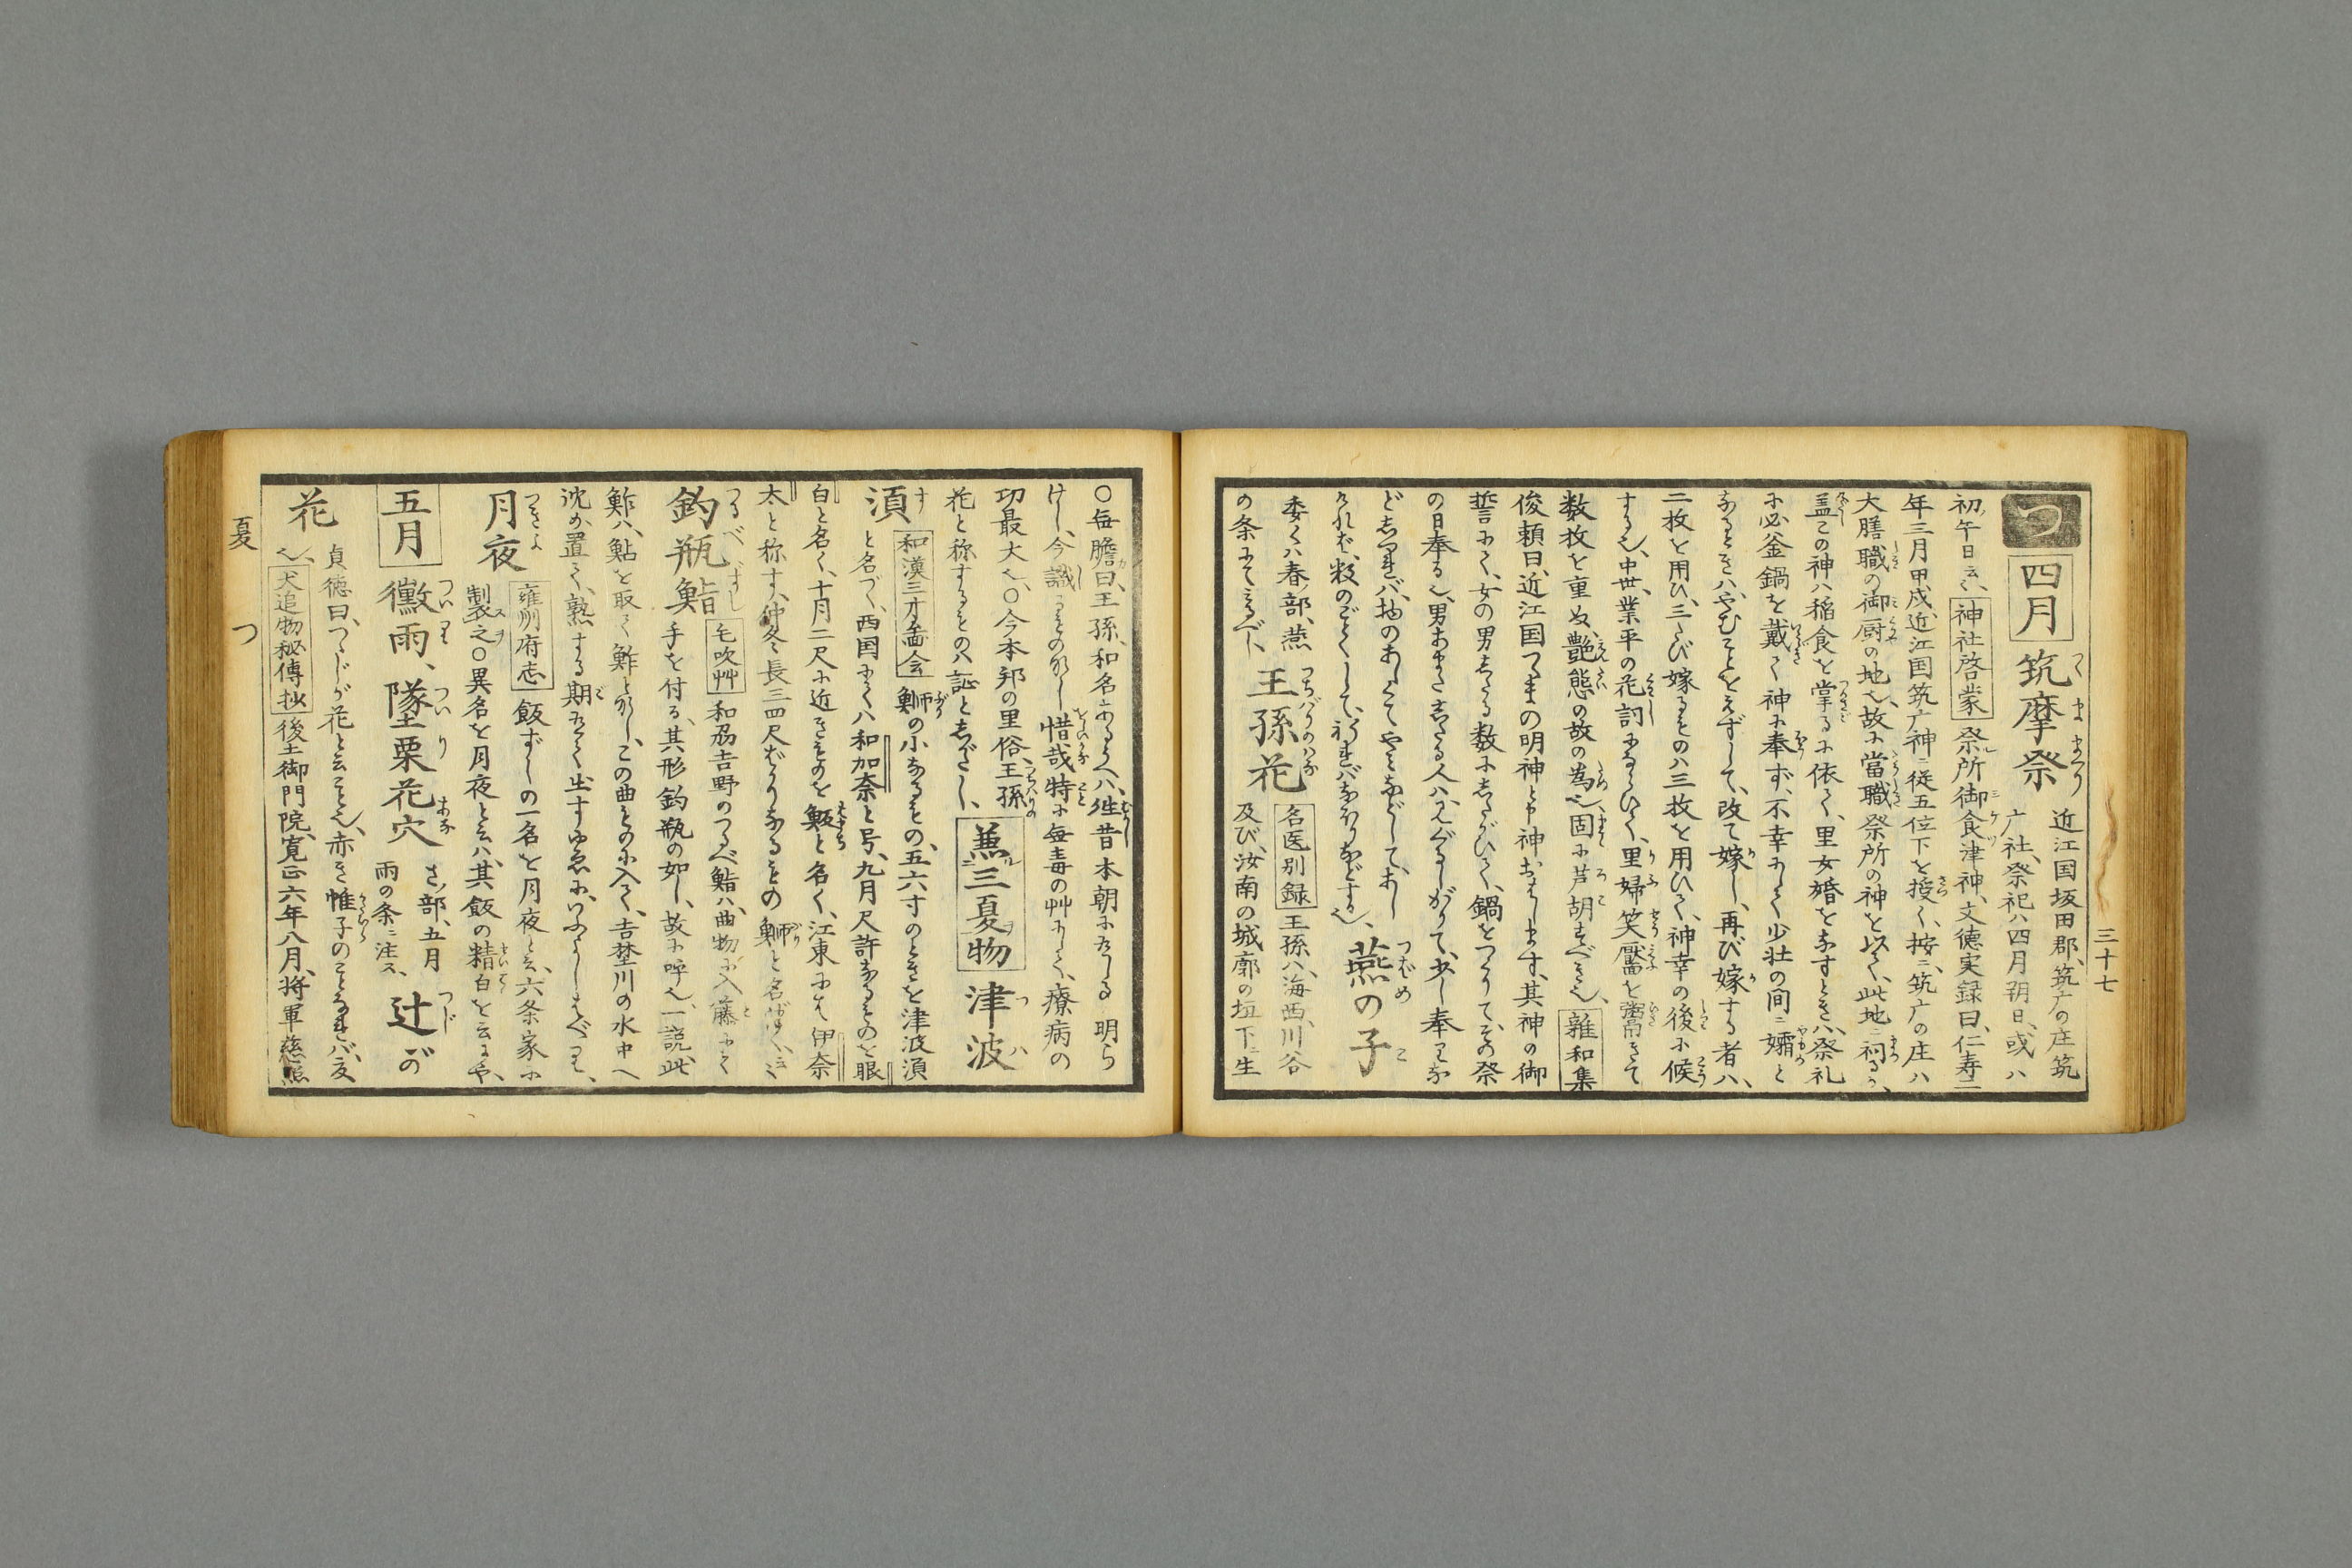 三十七
つ 四月 筑摩祭 近江国坂田郡、筑广の庄筑
广社、祭祀ハ四月朔日、或ハ
初午日云々、神社啓蒙 祭所御食津神、文徳実録曰、仁寿二
年三月甲戌、近江国筑广神ニ従五位下を授く、按ニ筑广の庄ハ
大膳職の御厨の地也、故に當職祭所の神を以て、此地ニ祠るか、
盖この神ハ稲食を掌るに依て、里女婚をなすとき、ハ祭礼
に必釜鍋を戴て神に奉ず、不幸にして少壮の間ニ孀と
なるときハ、やむことをえずして、改て嫁し、再び嫁する者ハ、
二枚を用ひ、三たび嫁るものハ三枚を用ひて、神幸の後に候
する也、中世、業平の花詞にならひて、里婦笑靨を鬻ぎて
数枚を重ぬ、艶態の故の為也、固に芦胡すべき也、雑和集
俊頼曰、近江国つくまの明神と申神おはします、其神の御
誓にて、女の男したる数にしたがひて、鍋をつくりて、その祭
の日奉る也、男あまたしたる人ハ、見ぐるしがりて、少し奉りな
どしつれバ、物のあしくてやみなどして、あし
けれど、数のごとくして、祈れバなほりなどする也、 燕の子
委くハ春部、燕
の条にてみるべし、 王孫花 名医別録 王孫ハ、海西、川谷
及び、汝南の城廓の垣下ニ生
〇毎膽曰、王孫、和名あるハ、往昔本朝になしる 明ら
けし、今識るものなし、惜哉特に毎毒の艸にして、療病の
功最大也、〇今本邦の里俗、王孫
花と称するものハ証としがたし、 兼三夏物 津波
須 和漢三才圖会 鰤の小なるもの、五六寸のときを津波須
と名づく、西国にてハ和加奈と号、九月尺許なるものを眼
白と名く、十月二尺に近きものを 魬と名く、江東にては伊奈
太と称す、仲冬長三四尺ばかりなるもの 鰤と名づく、云々
釣瓶鮨 毛吹艸 和刕吉野のつるべ鮨ハ、曲物に入藤にて
手を付る、其形釣瓶の如し、故に呼也、一説、此
鮓ハ、鮎を取て鮓となし、この曲ものに入て、吉埜川の水中へ
沈め置て、熟する期なく出すゆゑに、いふうしはべりし、
月夜 雍州府志 飯ずしの一名を月夜と云、六条家に
製之〇異名を月夜と云ハ、其飯の精白を云にや、
五月 黴雨、墜栗花穴 さ部、五月
雨の条ニ注ス、 辻が
花 貞徳曰、つじが花と云こと也、赤き帷子のことなれバ、夏
也、犬追物秘傳抄 後土御門院、寛正六年八月、将軍慈照
夏 つ